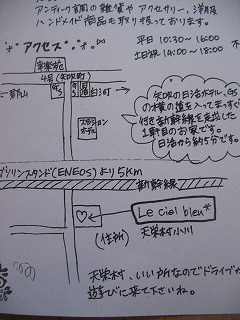 アンティーク調の雑貨やアクセサリー、洋服
ハンドメイド商品も取り扱っております。
アクセス
平日 10:30〜16:00
土日祝 14:00〜18:00
4号(矢吹町)
白河
矢吹の日活ホテル、GS
の木横の道を入ってまっすぐ
行き新幹線を
1軒目のお家です。
日活から約5分です。
ガソリンスタンド(ENEOS)より5km
新幹線
Le ciel bleu*
(住所)
天栄村小川
天栄村、いい所なのでドライブ
遊びに来て下さいね。